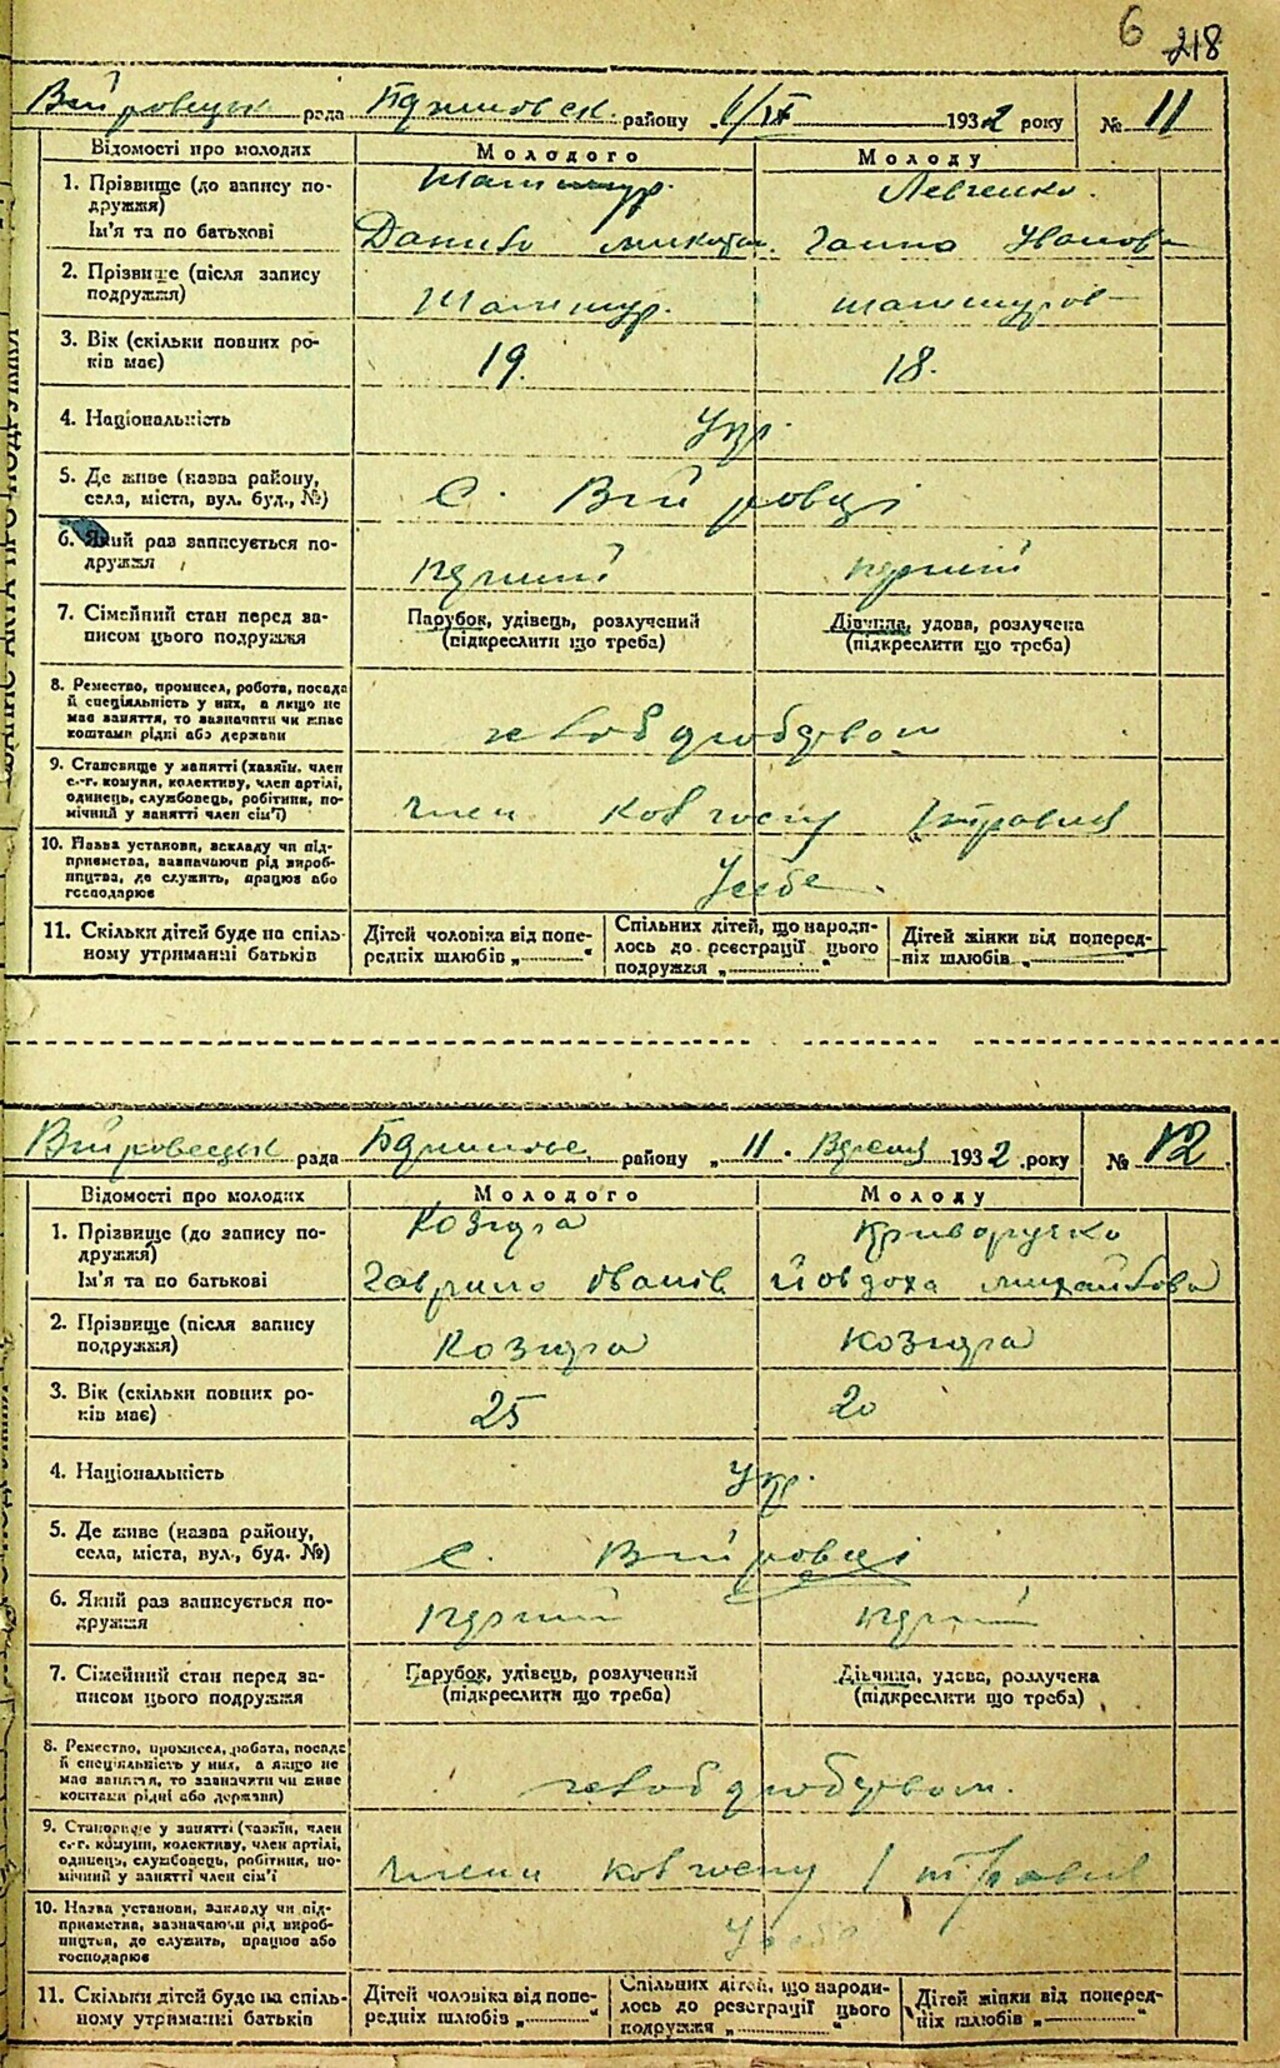 6 218
рада району 6/IX 1932 року № 11
Відомості про молодих Молодого Молоду
1. Прізвище (до запису по- Левченко.
дружжя)
Ім'я та по батькові Данило Ганна Іванов
2. Прізвище (після запису
подружжя)
3. Вік (скільки повних ро- 19. 18.
ків має)
4. Національність Укр.
5. Де живе (назва району, с. Війтовці
села, міста, вул. буд., №)
6. Який раз записується по- перший перший
дружжя
7. Сімейний стан перед за- Парубок, удівець, розлучений Дівчина, удова, розлучена
писом цього подружжя (підкреслити що треба) (підкреслити що треба)
8. Ремество, промисел, робота, посада
й спеціяльність у них, а якщо не
має заняття, то зазначити чи живе
коштами рідні або держави хлоборобством
9. Становище у занятті (хазяїн, член
с.-г. комуни, колективу, член артілі,
одинець, службовець, робітник, по- член колгоспу
мічний у занятті член сім'ї)
10. Назва установи, закладу чи під-
приємства, зазначаючи рід вироб-
ництва, де служить, працює або
господарює
11. Скільки дітей буде на спіль- Дітей чоловіка від попе- Спільних дітей, що народи- Дітей жінки від поперед-
ному утриманні батьків редніх шлюбів „ “ лось до реєстрації цього ніх шлюбів „ “
подружжя „ “
рада району „ 11. 1932 року № 12
Відомості про молодих Молодого Молоду
1. Прізвище (до запису по- Козира Криворучко
дружжя)
Ім'я та по батькові Гаврило Іванів Йовдоха Михайлова
2. Прізвище (після запису Козира Козира
подружжя)
3. Вік (скільки повних ро- 25 20
ків має)
4. Національність Укр.
5. Де живе (назва району, с. Війтовці
села, міста, вул., буд. №)
6. Який раз записується по- перший перший
дружжя
7. Сімейний стан перед за- Парубок, удівець, розлучений Дівчина, удова, розлучена
писом цього подружжя (підкреслити що треба) (підкреслити що треба)
8. Ремество, промисел, робота, посада
й спеціяльність у них, а якщо не
має заняття, то зазначити чи живе
коштами рідні або держави) хлоборобством.
9. Становище у занятті (хазяїн, член
с.-г. комуни, колективу, член артілі,
одинець, службовець, робітник, по- члени колгоспу
мічний у занятті член сім'ї
10. Назва установи, закладу чи під-
приємства, зазначаючи рід вироб-
ництва, де служить, працює або
господарює
11. Скільки дітей буде на спіль- Дітей чоловіка від попе- Спільних дітей, що народи- Дітей жінки від поперед-
ному утриманні батьків редніх шлюбів „ “ лось до реєстрації цього ніх шлюбів „ “
подружжя „ “